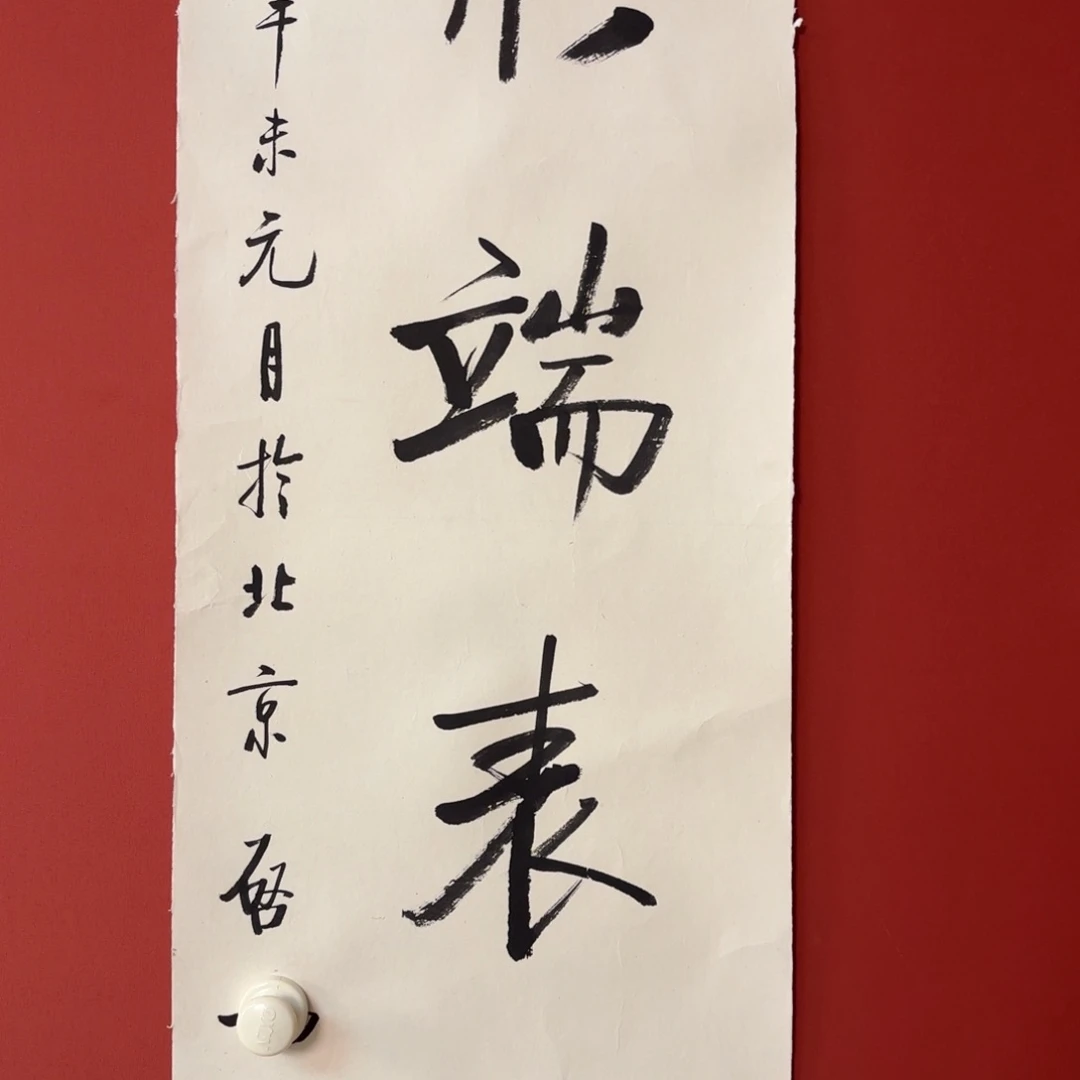 端表
辛未元月於北京 啓